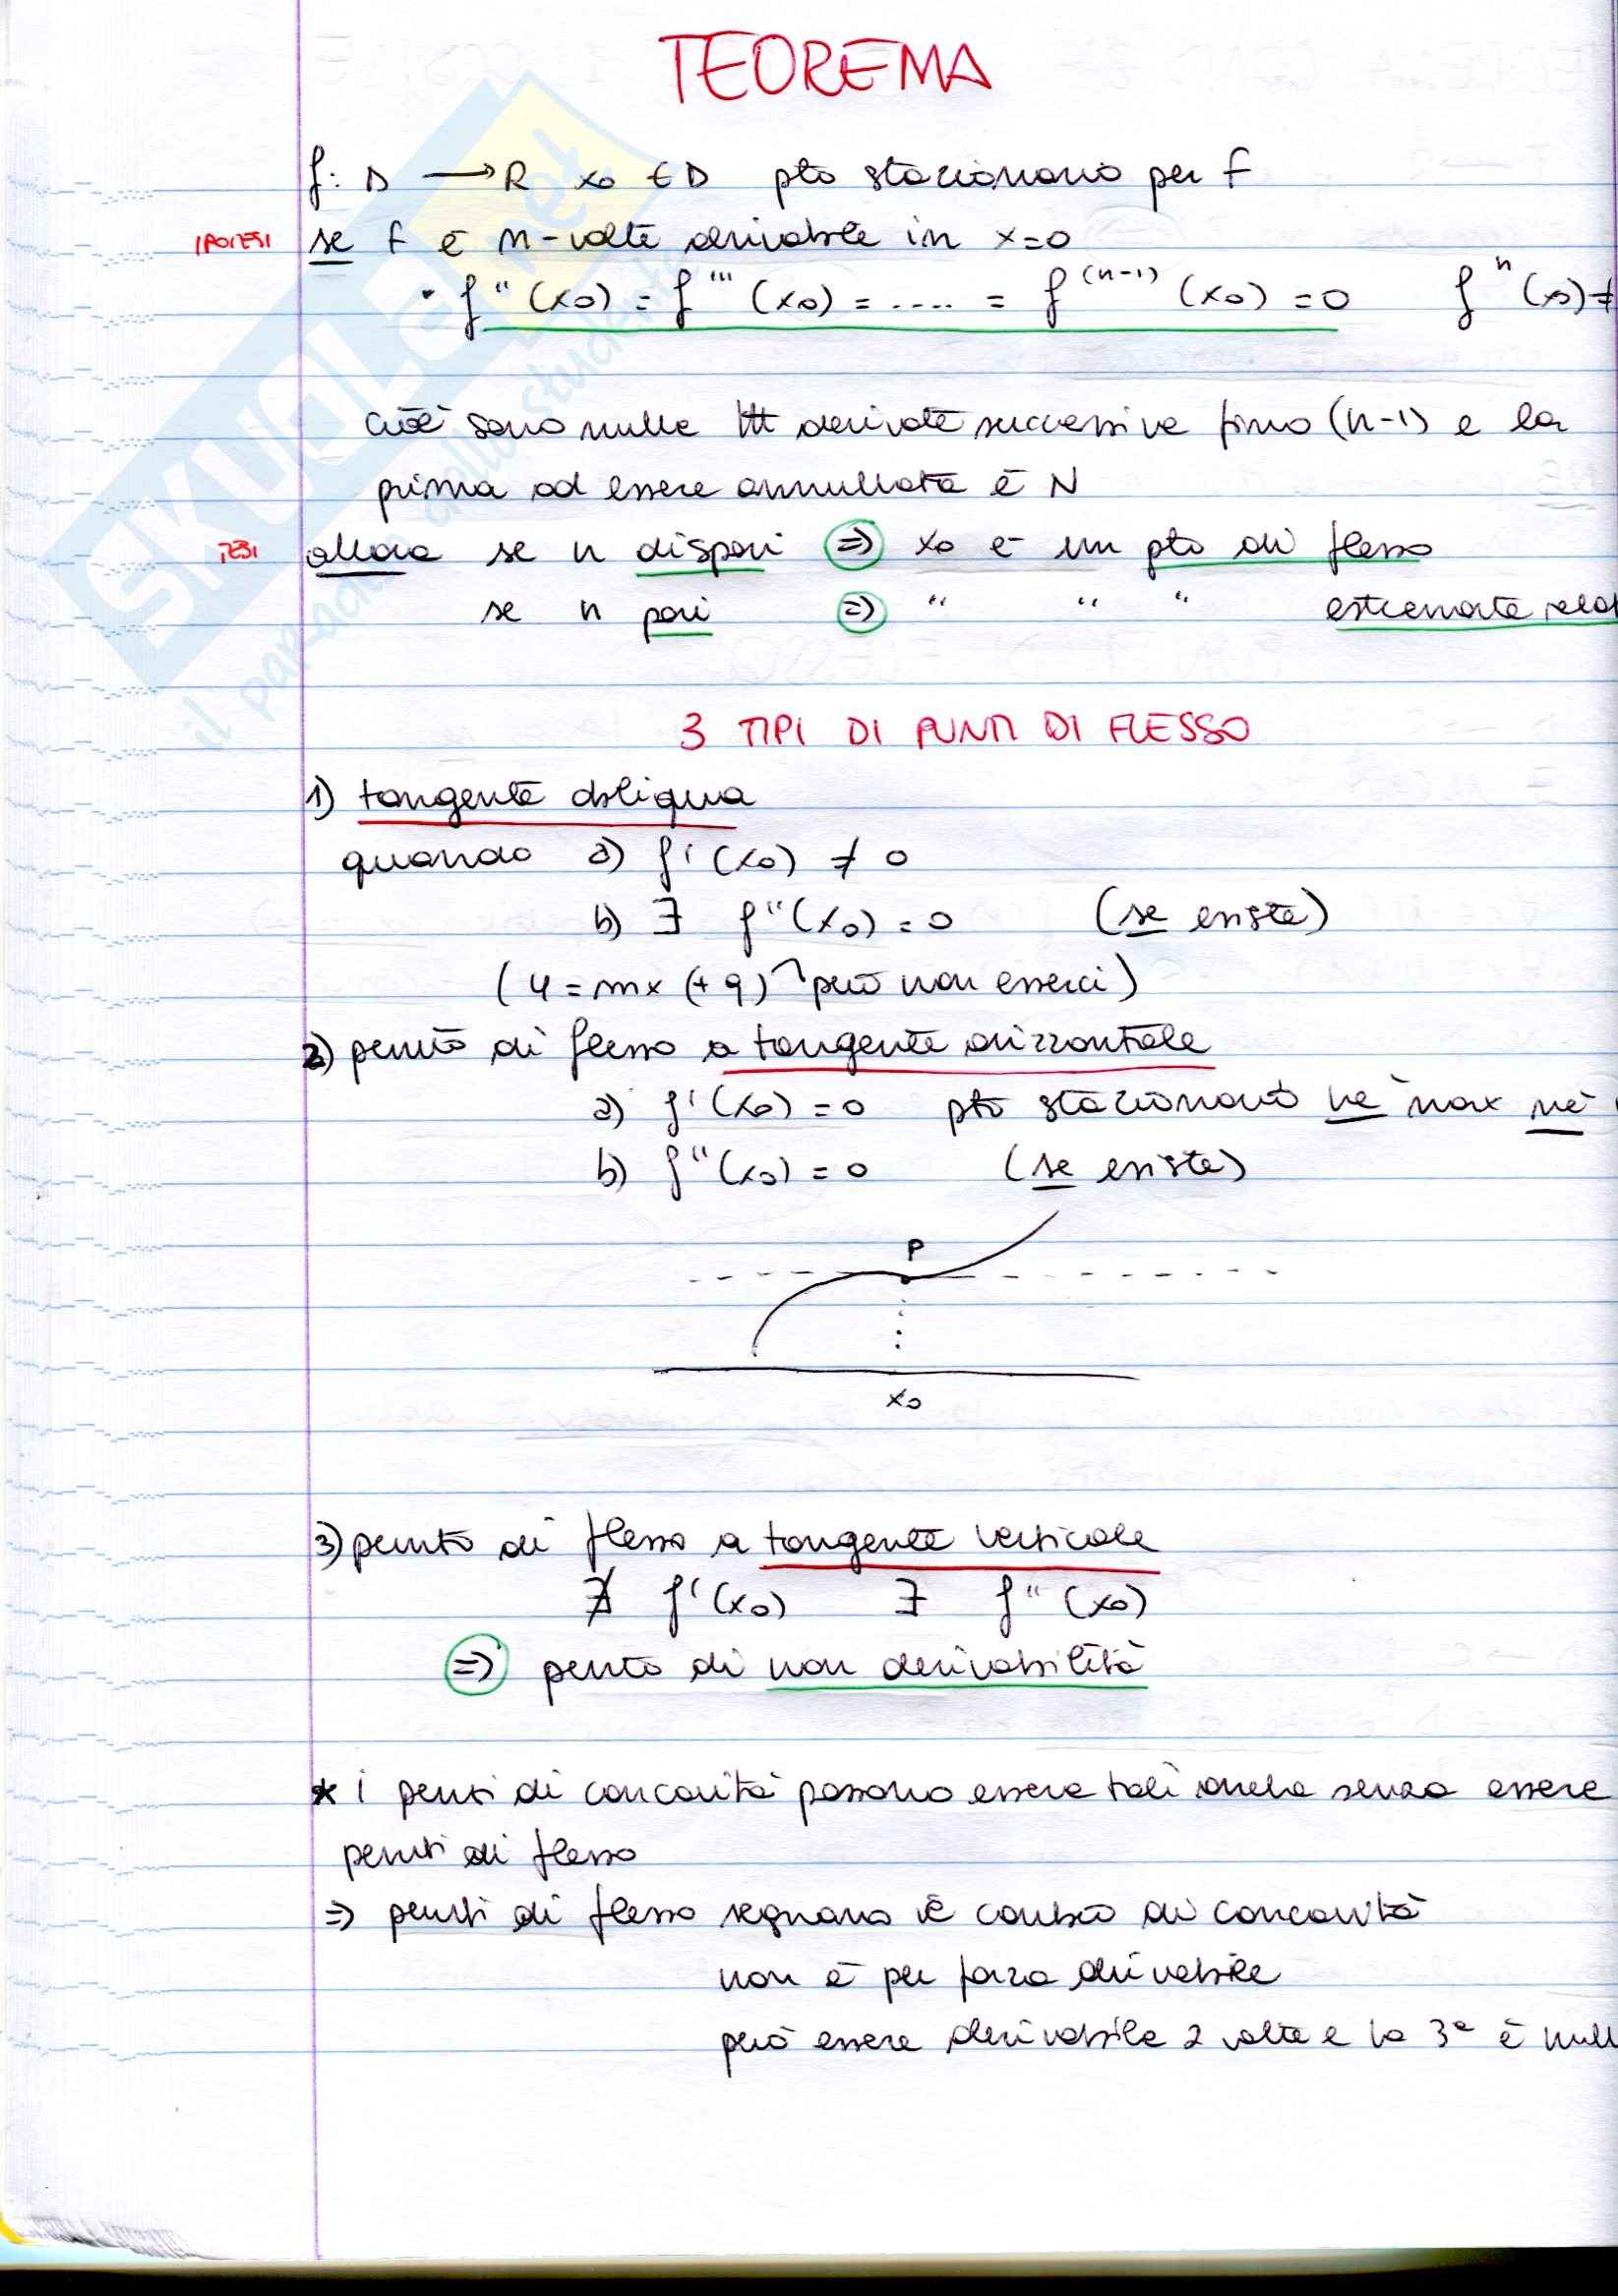 TEOREMA
f: D → R x₀ ∈ D pto stazionario per f
IPOTESI se f è n-volte derivabile in x=0
• f''(x₀) = f'''(x₀) = .... = f⁽ⁿ⁻¹⁾(x₀) = 0 fⁿ(x₀) ≠
cioè sono nulle derivate successive fino (n-1) e la
prima ad essere annullata è N
TESI allora se n dispari ⇒ x₀ è un pto di flesso
se n pari ⇒ " " " estremante relat
3 TIPI DI PUNTI DI FLESSO
1) tangente obliqua
quando a) f'(x₀) ≠ 0
b) ∃ f''(x₀) = 0 (se esiste)
(y = mx (+q) può non esserci)
2) punto di flesso a tangente orizzontale
a) f'(x₀) = 0 pto stazionario nè max nè
b) f''(x₀) = 0 (se esiste)
P
x₀
3) punto di flesso a tangente verticale
∄ f'(x₀) ∃ f''(x₀)
⇒ punto di non derivabilità
* I punti di concavità possono essere tali anche senza essere
punti di flesso
⇒ punti di flesso segnano il cambio di concavità
non è per forza derivabile
può essere derivabile 2 volte e la 3ª è null
SKUOLA.net
il paradiso dello studente